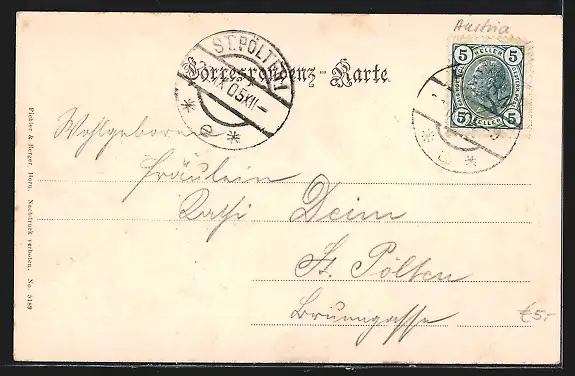 Austria
ST. PÖLTEN
IX 05 XII-
Correspondenz-Karte
5 HELLER 5
5 5
Wohlgeboren
Fräulein
Kathi Deim
St. Pölten
Brunngasse
€5.-
Pichler & Berger, Horn. Nachdruck verboten. No. 5189